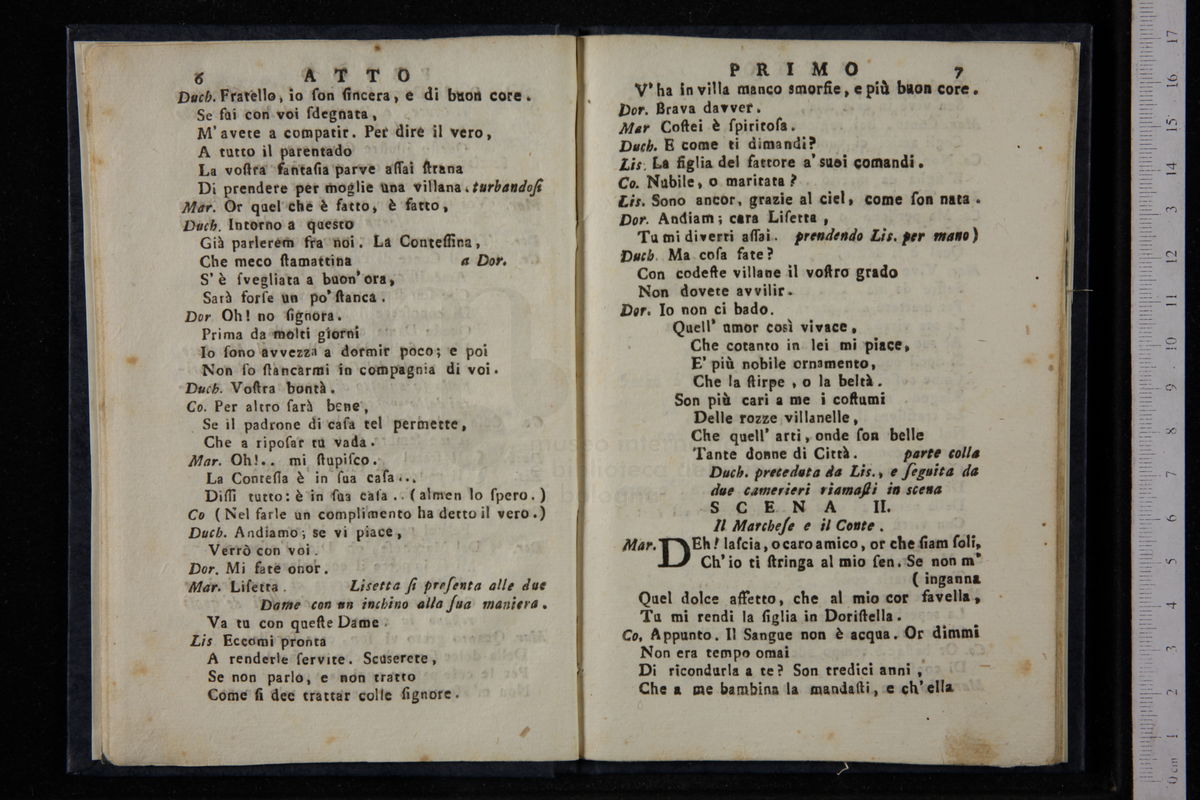 6 ATTO
Duch. Fratello, io ſon ſincera, e di buon core.
Se fui con voi ſdegnata,
M'avete a compatir. Per dire il vero,
A tutto il parentado
La voſtra fantaſia parve aſſai ſtrana
Di prendere per moglie una villana. turbandoſi
Mar. Or quel che è fatto, è fatto,
Duch. Intorno a queſto
Già parlerem fra noi. La Conteſſina,
Che meco ſtamattina a Dor.
S'è ſvegliata a buon'ora,
Sarà forſe un po' ſtanca.
Dor Oh! no ſignora.
Prima da molti giorni
Io ſono avvezza a dormir poco; e poi
Non ſo ſtancarmi in compagnia di voi.
Duch. Voſtra bontà.
Co. Per altro ſarà bene,
Se il padrone di caſa tel permette,
Che a ripoſar tu vada.
Mar. Oh!.. mi ſtupiſco.
La Conteſſa è in ſua caſa...
Diſſi tutto: è in ſua caſa.. (almen lo ſpero.)
Co (Nel farle un complimento ha detto il vero.)
Duch. Andiamo; se vi piace,
Verrò con voi.
Dor. Mi fate onor.
Mar. Liſetta. Lisetta ſi preſenta alle due
Dame con un inchino alla ſua maniera.
Va tu con queſte Dame.
Lis Eccomi pronta
A renderle ſervite. Scuserete,
Se non parlo, e non tratto
Come ſi dee trattar colle ſignore.
PRIMO 7
V'ha in villa manco smorfie, e più buon core.
Dor. Brava davver.
Mar Coſtei è ſpiritoſa.
Duch. E come ti dimandi?
Lis. La figlia del fattore a' suoi comandi.
Co. Nubile, o maritata?
Lis. Sono ancor, grazie al ciel, come ſon nata.
Dor. Andiam; cara Liſetta,
Tu mi diverti aſſai. prendendo Lis. per mano)
Duch. Ma coſa fate?
Con codeſte villane il voſtro grado
Non dovete avvilir.
Dor. Io non ci bado.
Quell' amor così vivace,
Che cotanto in lei mi piace,
E' più nobile ornamento,
Che la ſtirpe, o la beltà.
Son più cari a me i coſtumi
Delle rozze villanelle,
Che quell' arti, onde ſon belle
Tante donne di Città. parte colla
Duch. preceduta da Lis., e ſeguita da
due camerieri riamaſti in scena
SCENA II.
Il Marcheſe e il Conte.
Mar. DEh! laſcia, o caro amico, or che ſiam ſoli,
Ch'io ti ſtringa al mio ſen. Se non m'
(inganna
Quel dolce affetto, che al mio cor favella,
Tu mi rendi la figlia in Doriſtella.
Co, Appunto. Il Sangue non è acqua. Or dimmi
Non era tempo omai
Di ricondurla a te? Son tredici anni,
Che a me bambina la mandaſti, e ch'ella